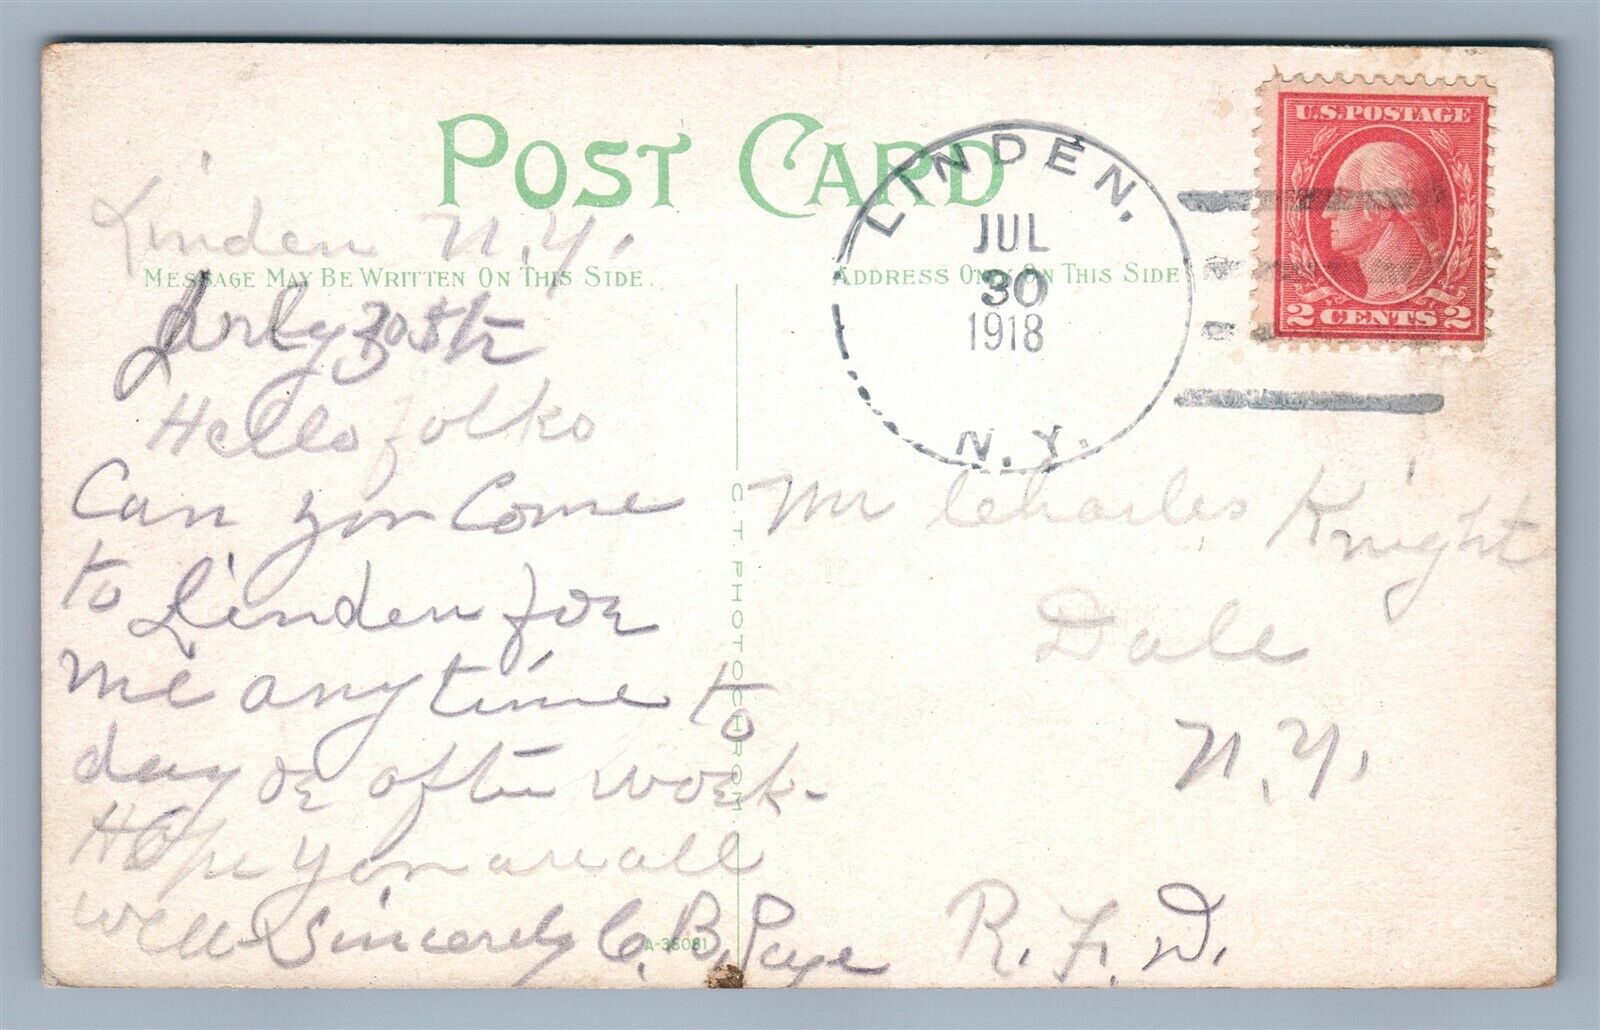 POST CARD
Linden N.Y.
MESSAGE MAY BE WRITTEN ON THIS SIDE
July 30th
Hello folks
Can you Come
to Linden for
me anytime to
day or after work-
Hope you are all
well- Sincerely C. B. Page
A-38081
C. T. PHOTOCHROM
LINDEN,
JUL
30
1918
N.Y.
U.S. POSTAGE
2 CENTS 2
ADDRESS ONLY ON THIS SIDE
Mr Charles Knight
Dale
N.Y.
R.F.D.